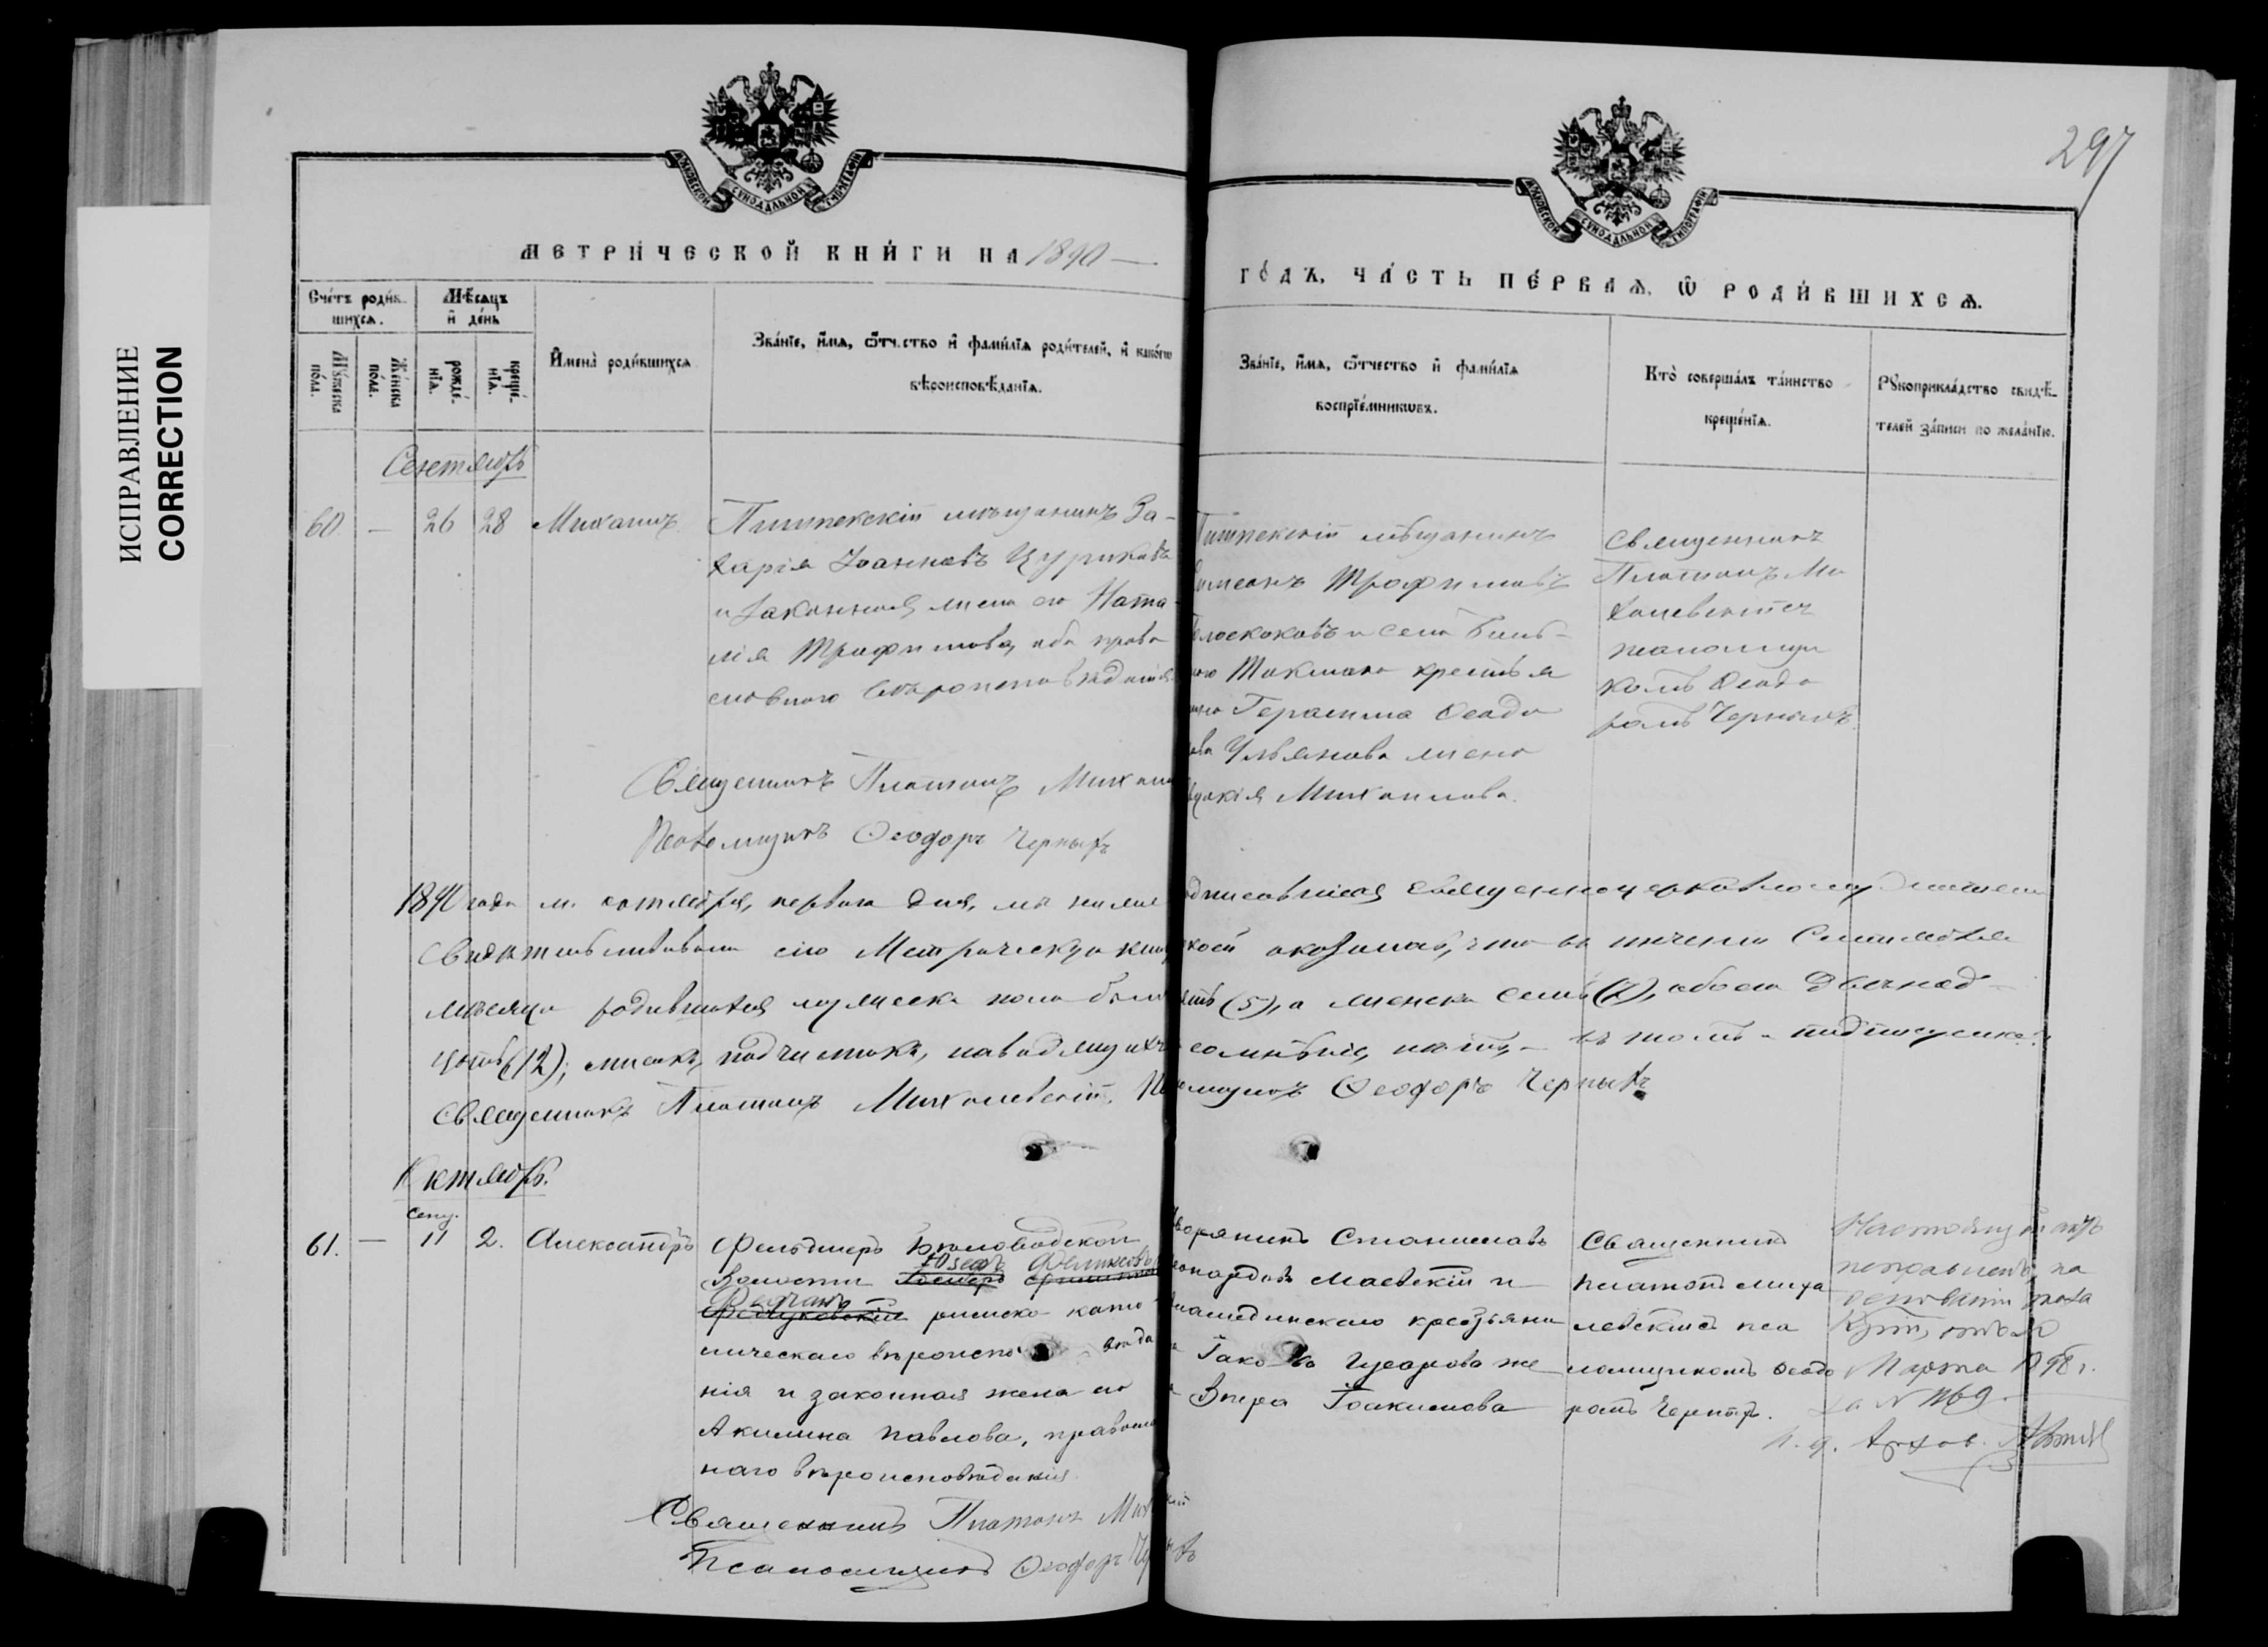 ИСПРАВЛЕНИЕ
CORRECTION
297
МЕТРИ́ЧЕСКОЙ КНИ́ГИ НА 1890
ГО́ДЪ, ЧА́СТЬ ПЕ́РВАѦ, Ѿ РОДИ́ВШИХСѦ.
Сче́тъ роди́вшихсѧ.
Мѣ́сѧцъ и҆ де́нь
Мꙋ́жеска по́ла.
Же́нска по́ла.
рожде́нїѧ.
креще́нїѧ.
И҆мена̀ роди́вшихсѧ
Зва́нїе, и҆́мѧ, ѻ҆́тчество и҆ фами́лїѧ роди́телей, и҆ како́гѡ
вѣроисповѣ́данїѧ.
Зва́нїе, и҆́мѧ, ѻ҆́тчество и҆ фами́лїѧ
воспрїе́мникѡвъ.
Кто̀ соверша́лъ та́инство
креще́нїѧ.
Рꙋкоприкла́дство свидѣ́телей за́писи по жела́нїю.
Сентябрь
60 — 26 28 Михаилъ
Пишпекскій мѣщанинъ За-
харія Іоанновъ Цуриковъ
и законная жена его Ната-
лія Трофимова, оба право
славнаго вѣроисповѣданія
Пишпекскій мѣщанинъ
Симеонъ Трофимовъ
и села
Токмака крестья
Герасима Ѳеодо
Ульянова жена
Михаилова.
Священникъ
Платонъ Ми
халевскій съ
псаломщи
комъ Ѳеодо
ромъ Черныхъ
Священникъ Платонъ Михал
Псаломщикъ Ѳеодоръ Черныхъ
1890 года м. октября, перваго дня, мы ниже
подписавшіеся
свидѣтельствовали сію Метрическую книгу
оказалось, что въ теченіи Сентября
мѣсяца родившихся мужеска пола было
пять (5), а женска семь (7), обоего двѣнад-
цать (12); подчистокъ, наводящихъ
сомнѣніе, нѣтъ, въ томъ и подписуемся:
Священникъ Платонъ Михалевскій. Псаломщикъ Ѳеодоръ Черныхъ
Октябрь.
сент.
61. — 11 2. Александръ
Фельдшеръ Бѣловодской
Юзефъ Феликсовъ
Волости
римско-като
лическаго вѣроисповѣда
нія и законная жена его
Акилина Павлова, православ
наго вѣроисповѣданія
Дворянинъ Станиславъ
Леонардовъ Маевскій и
крестьяни
на Іакова Гусарова же
на Вѣра Іоакимова
Священникъ
Платонъ Миха
левскій съ пса
ломщикомъ Ѳеодо
ромъ Черныхъ.
Настоящій актъ
исправленъ на
основаніи указа
Марта 1898 г.
за № 1169.
и. д. Архив.
Священникъ Платонъ Михалевскій
Псаломщикъ Ѳеодоръ Черныхъ